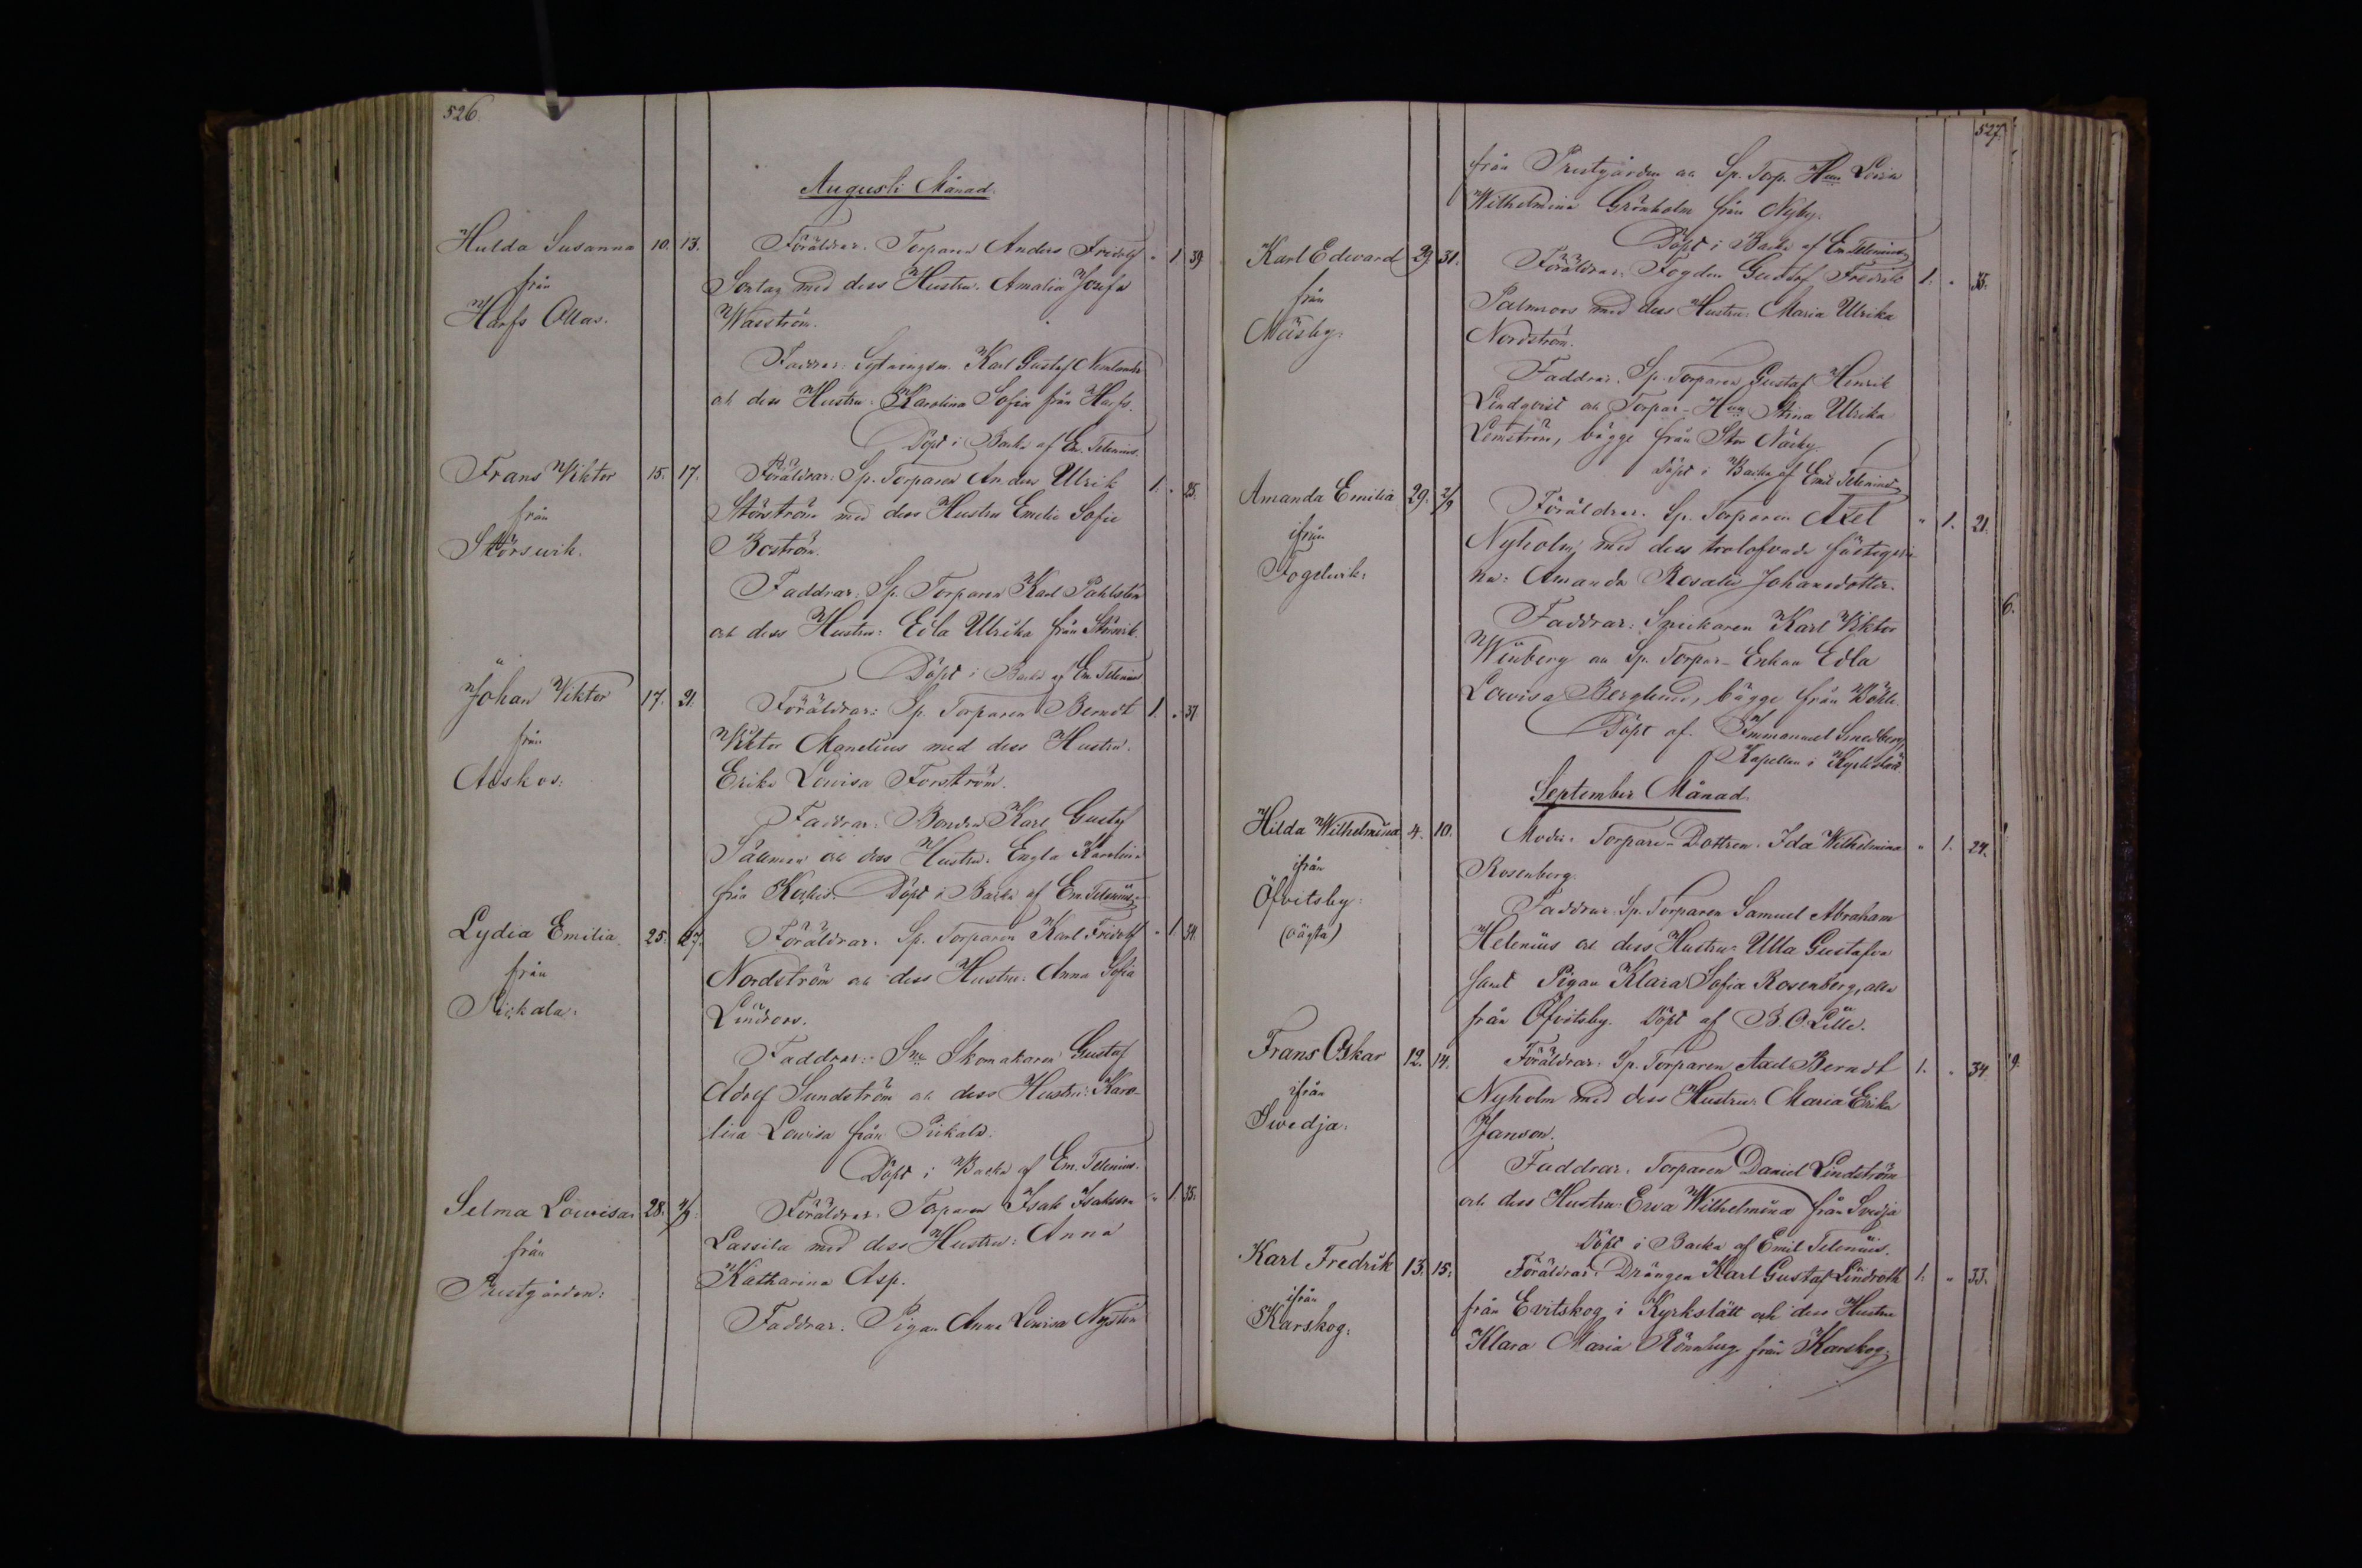 526.
Augusti Månad.
Hulda Susanna 10. 13. Föräldrar: Torparen Anders Fridolf " 1 39
från Sontag med dess Hustru: Amalia Josefa
Harfs Ollas. Wasström.
Faddrar: Karl Gustaf
och dess Hustru: Karolina Sofia från Harfs.
Döpt i Backa af Em. Telenius.
Frans Viktor 15. 17. Föräldrar: Sp. Torparen Anders Ulrik 1. " 25.
från Störström med dess Hustru Emelie Sofie
Störsvik. Boström.
Faddrar: Sp. Torparen Karl Påhlsten
och dess Hustru: Edla Ulrika från Störsvik.
Döpt i Backa af Em. Telenius
Johan Viktor 17. 21. Föräldrar: Sp. Torparen Berndt 1. " 37.
från Viktor Manelius med dess Hustru.
Erika Lowisa Forsström.
Faddrar: Bonden Karl Gustaf
och dess Hustru: Engla Karolina
från Döpt i Backa af Em. Telenius.
Lydia Emilia 25. 27. Föräldrar: Sp. Torparen Karl Fridolf " 1 34.
från Nordström och dess Hustru: Anna Sofia
Pickala: Lindroos.
Faddrar: Skomakaren Gustaf
Adolf Sundström och dess Hustru: Karo-
lina Lowisa från Pickala.
Döpt i Backa af Em. Telenius.
Selma Lowisa 28. Föräldrar: Torparen Isak Isaksson " 1 35.
från Lassila med dess Hustru: Anna
Prestgården: Katharina Asp.
Faddrar. Pigan Anna Lowisa Nysten
527.
från Prestgården och Sp. Torp. Hun Lovisa
Wilhelmina Grönholm från Nyby.
Döpt i Backa af Em Telenius
Karl Edward 29 31. Föräldrar: Fogden Gustaf Fredrik 1. " 35.
från Palmroos med dess Hustru: Maria Ulrika
Näsby: Nordström.
Faddrar. Sp. Torparen Gustaf Henrik
Lindqvist och Torpar-Hun Stina Ulrika
Lemström, bägge från Stor Näsby.
Döpt i Backa af Emil Telenius
Amanda Emilia 29. 2/9 Föräldrar. Sp. Torparen Axel " 1. 21.
ifrån Nyholm med dess trolofvade fästeqvin
Fogelvik: na: Amanda Rosalie Johansdotter.
Faddrar: Snickaren Karl Viktor
Winberg och Sp. Torpar-Enkan Edla
Lowisa Berglund, bägge från Böhle.
Döpt af Immanuel Smedberg
Kapellan i Kyrkslätt
September Månad.
Hilda Wilhelmina 4. 10. Moder: Torpare-Dottren. Ida Wilhelmina " 1. 24.
ifrån Rosenberg.
Öfvitsby: Faddrar: Sp. Torparen Samuel Abraham
(oägta) Helenius och dess Hustru: Ulla Gustafva
samt Pigan Klara Sofia Rosenberg, alla
från Öfvitsby. Döpt af B. O. Lille.
Frans Oskar 12. 14. Föräldrar: Sp. Torparen Axel Berndt 1. " 34.
ifrån Nyholm med dess Hustru: Maria Erika
Swedja: Janson.
Faddrar. Torparen Daniel Lindström
och dess Hustru: Eva Wilhelmina från Svedja
Döpt i Backa af Emil Telenius.
Karl Fredrik 13. 15. Föräldrar: Drängen Karl Gustaf Lindroth 1. " 33.
ifrån från Evitskog i Kyrkslätt och dess Hustru
Karskog: Klara Maria Rönnberg från Karskog.